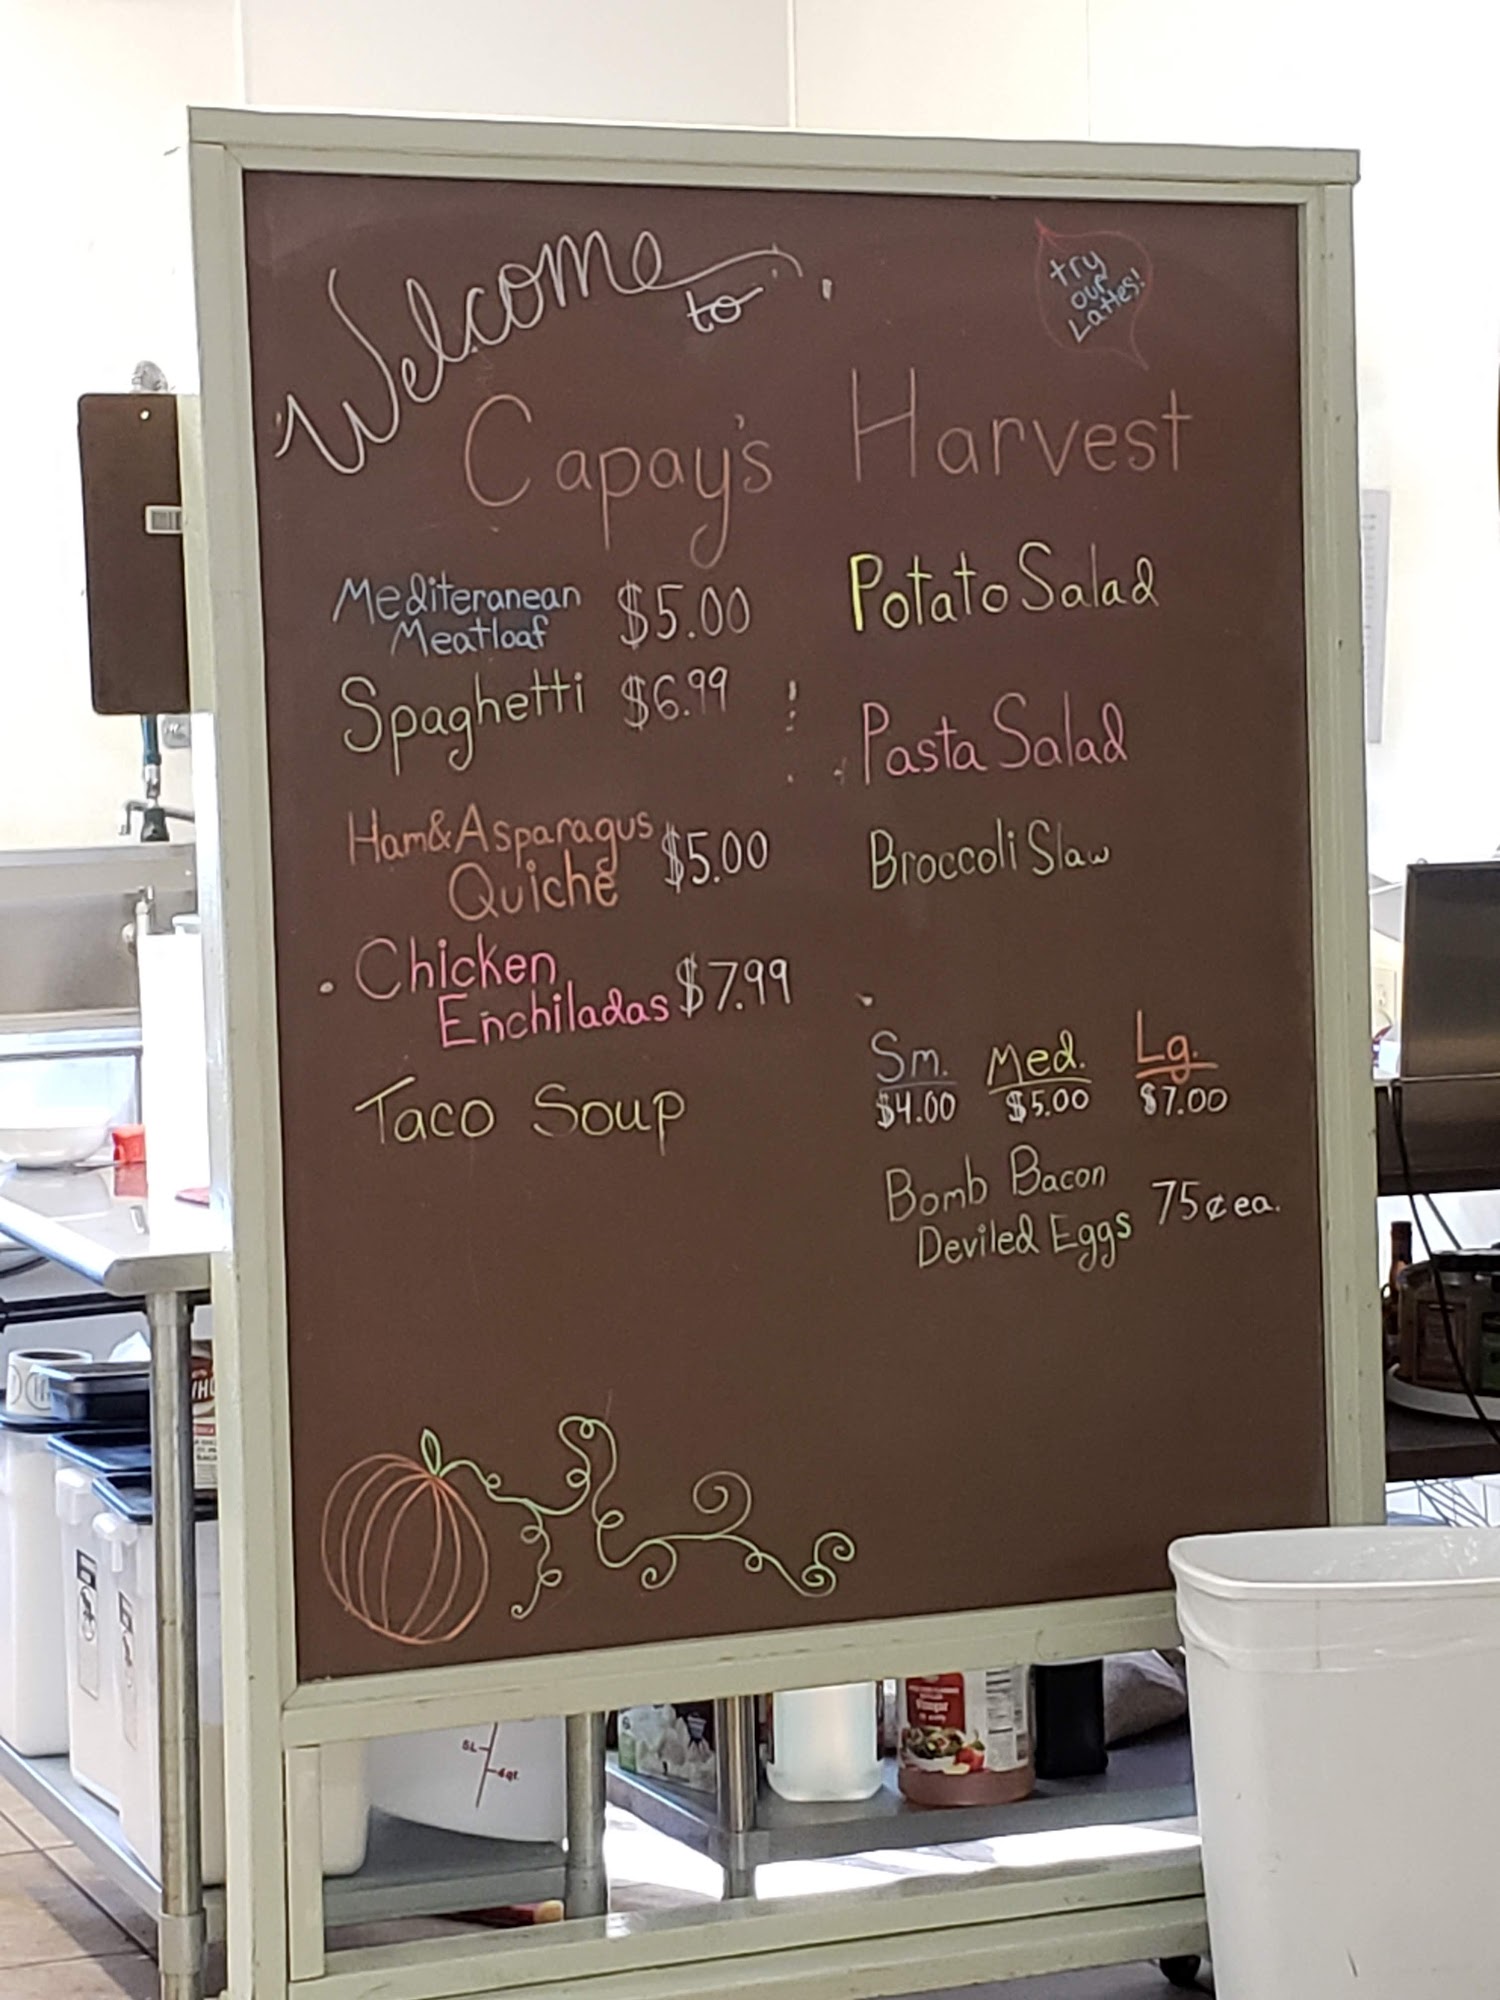 Welcome
to
try
our
Lattes!
Capay's Harvest
Mediteranean
Meatloaf $5.00
Spaghetti $6.99
Ham&Asparagus
Quiche $5.00
Chicken
Enchiladas $7.99
Taco Soup
Potato Salad
Pasta Salad
Broccoli Slaw
Sm. Med. Lg.
$4.00 $5.00 $7.00
Bomb Bacon
Deviled Eggs 75¢ ea.
Vinegar
6L
6qt